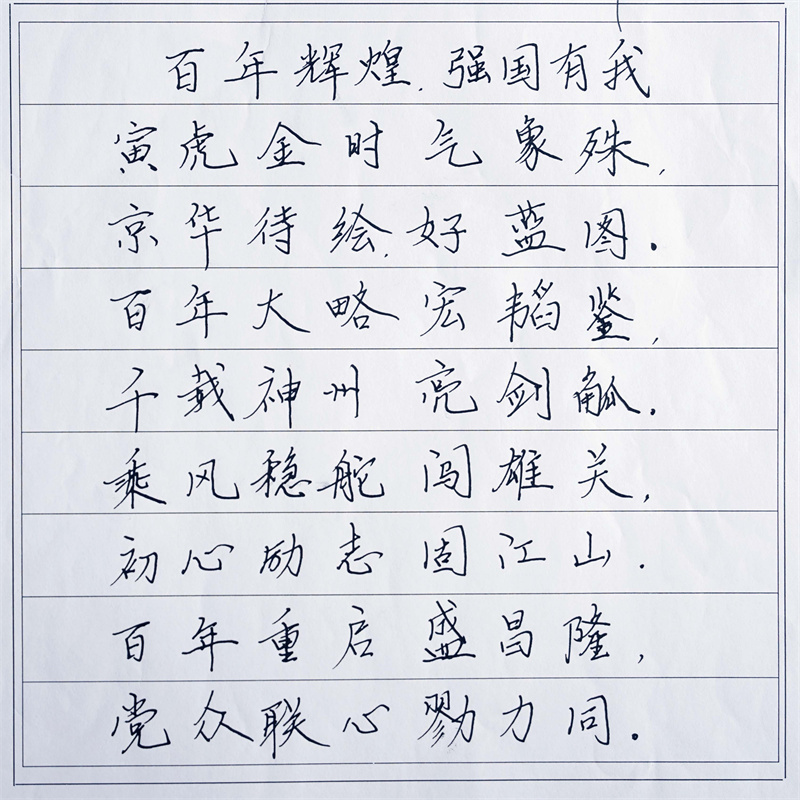 百年辉煌.强国有我
寅虎金时气象殊,
京华待绘.好蓝图.
百年大略宏韬鉴,
千载神州亮剑觚.
乘风稳舵闯雄关,
初心励志固江山.
百年重启盛昌隆,
党众联心勠力同.